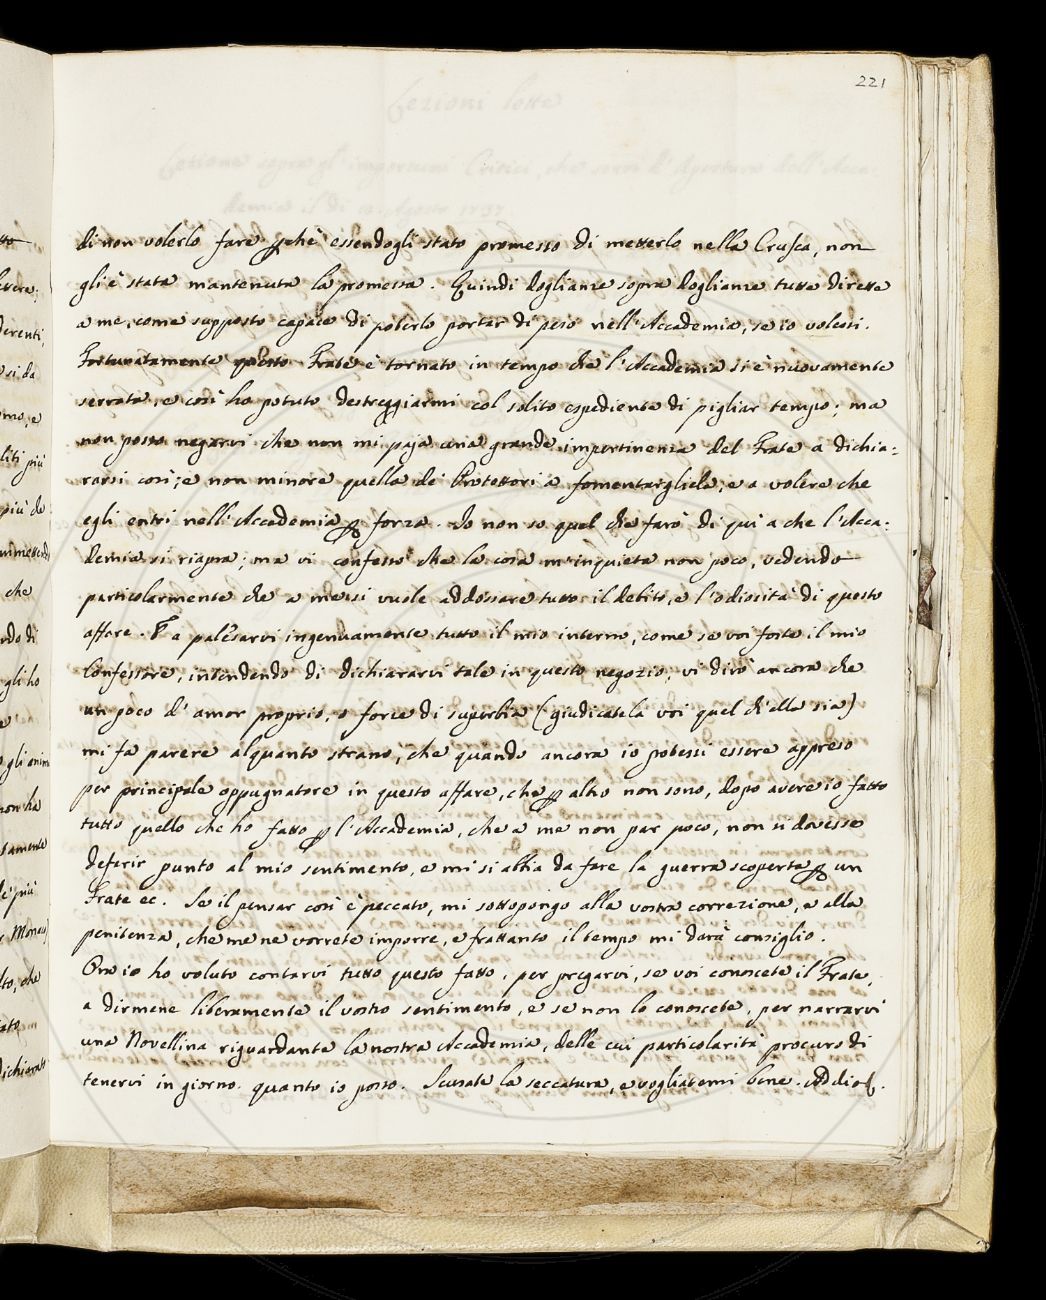 221
di non volerlo fare pchè essendogli stato promesso di metterlo nella Crusca, non
gli è stata mantenuta la promessa. Quindi doglianze sopra doglianze tutte dirette
a me, come supposto capace di poterlo portar di peso nell'Accademia, se io volessi.
Fortunatamente questo Frate è tornato in tempo che l'Accademia si è nuovamente
serrata, e così ho potuto destreggiarmi col solito espediente di pigliar tempo; ma
non posso negarvi che non mi paja una grande impertinenza del Frate a dichia=
rarsi così; e non minore quella de' Protettori a fomentargliela, e a volere che
egli entri nell'Accademia p forza. Io non so quel che farò di qui a che l'Acca=
demia si riapra; ma vi confesso che la cosa m'inquieta non poco, vedendo
particolarmente che a me si vuole addossare tutto il debito, e l'odiosità di questo
affare. E a palesarvi ingenuamente tutto il mio interno, come se voi foste il mio
Confessore, intendendo di dichiararvi tale in questo negozio, vi dirò ancora che
un poco d'amor proprio, o forse di superbia (giudicatela voi quel ch'ella sia)
mi fa parere alquanto strano, che quando ancora io potessi essere appreso
per principale oppugnatore in questo affare, che p altro non sono, dopo avere io fatto
tutto quello che ho fatto p l'Accademia, che a me non par poco, non si dovesse
deferir punto al mio sentimento, e mi si abbia da fare la guerra scoperta p un
Frate ec. Se il pensar così è peccato, mi sottopongo alla vostra correzione, e alla
penitenza, che me ne vorrete imporre, e frattanto il tempo mi darà consiglio.
Ora io ho voluto contarvi tutto questo fatto, per pregarvi, se voi conoscete il Frate,
a dirmene liberamente il vostro sentimento, e se non lo conoscete, per narrarvi
una Novellina riguardante la nostra Accademia, delle cui particolarità procuro di
tenervi in giorno quanto io posso. Scusate la seccatura, e vogliatemi bene. Addio.